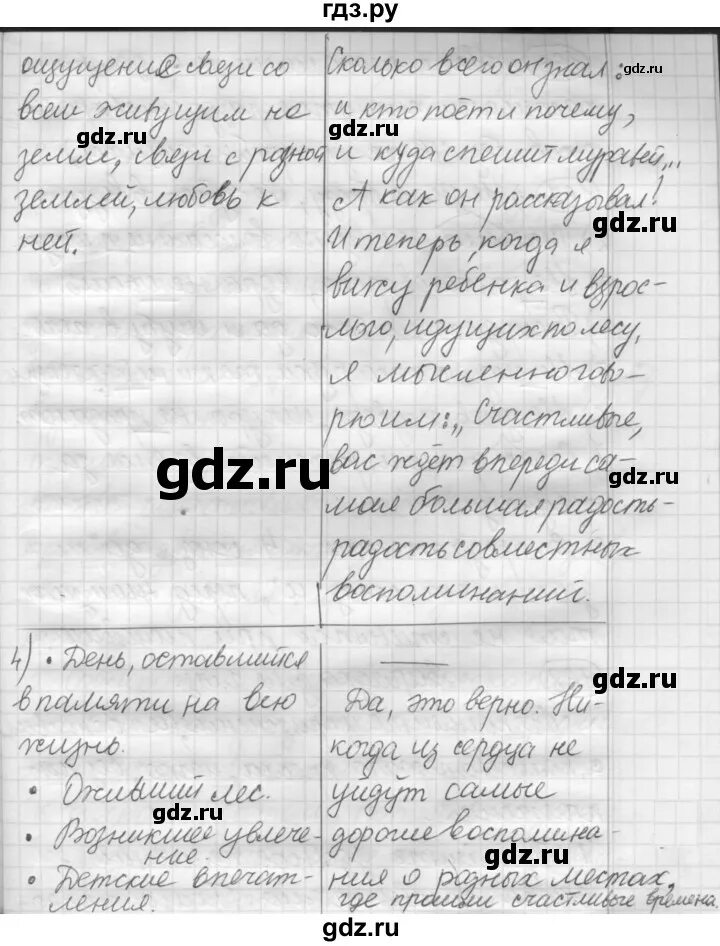 гдз.ру
ощущение связи со
всем живущим на
земле, связи с родной
землей, любовь к
ней.
Сколько всего он знал:
и кто поёт и почему,
и куда спешит муравей...
А как он рассказывал!
И теперь, когда я
вижу ребенка и взрос-
лого, идущих по лесу,
я мысленно гово-
рю им: „Счастливые,
вас ждёт впереди са-
мая большая радость-
радость совместных
воспоминаний.
4) • День, оставшийся
в памяти на всю
жизнь.
• Оживший лес.
• Возникшее увлече-
ние.
• Детские впечат-
ления.
Да, это верно. Ни-
когда из сердца не
уйдут самые
дорогие воспомина-
ния о родных местах,
где прошли счастливые времена.
gdz.ru
gdz.ru
gdz.ru
gdz.ru
gdz.ru
gdz.ru
gdz.ru
gdz.ru
gdz.ru
gdz.ru
gdz.ru
gdz.ru
gdz.ru